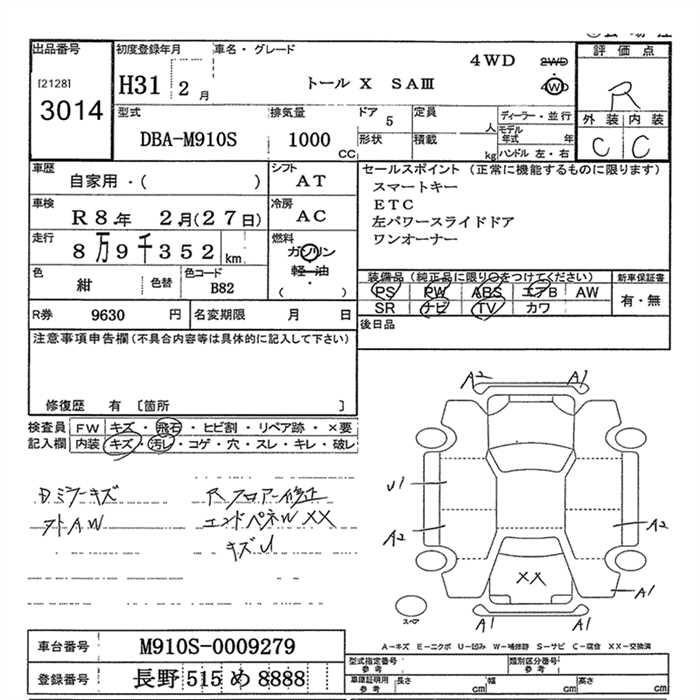 出品番号
[2128]
3014
初度登録年月
H31 2 月
車名・グレード
トール X SAⅢ
4WD
2WD
4WD
評価点
R
外装 内装
C C
型式
DBA-M910S
排気量
1000 CC
ドア
5
形状
定員
人
積載
kg
ディーラー・並行
モデル年式
年
ハンドル 左・右
車歴
自家用・( )
シフト
AT
車検
R8年 2月(27日)
冷房
AC
走行
8万9千352 km
燃料
ガソリン
軽油
・
( )
色
紺
色替
色コード
B82
R券 9630 円
名変期限 月 日
セールスポイント (正常に機能するものに限ります)
スマートキー
ETC
左パワースライドドア
ワンオーナー
装備品 (純正品に限り○をつけてください)
PS PW ABS エアB AW
SR ナビ TV カワ
新車保証書
有・無
後日品
注意事項申告欄(不具合内容等は具体的に記入して下さい)
修復歴 有 〔箇所 〕
検査員 FW キズ・飛石・ヒビ割・リペア跡・×要
記入欄 内装 キズ・汚レ・コゲ・穴・スレ・キレ・破レ
Dミラーキズ
Rフロアー修正
AW
エンドパネW XX
キズU
A2 A1
U1
A2 A2
XX
A1
A1 A1
スペア
A-キズ E-エクボ U-凹み W-補修跡 S-サビ C-腐食 XX-交換済
車台番号 M910S-0009279
登録番号 長野 515 め 8888
型式指定番号
参考
類別区分番号
参考
車庫証明用
参考
長さ cm 幅 cm 高さ cm